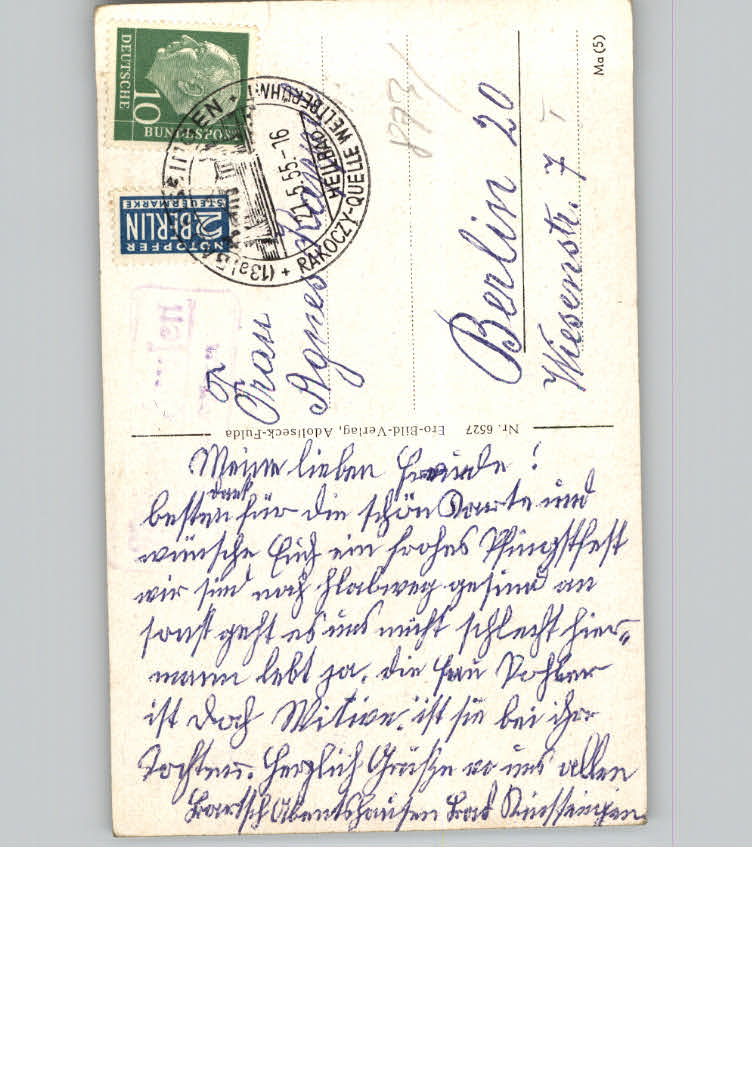 Meine lieben Freunde!
dank
besten für die schön Karte und
wünsche Euch ein frohes Pfingstfest
wir sind noch gesund an
sonst geht es uns nicht schlecht hier
mann lebt ja. die Frau
ist doch Witwe. ist sie bei ihr
Tochter. Herzlich Grüße vo uns allen
Bartsch Bad Kissingen
Nr. 6527 Ero-Bild-Verlag, Adolfseck-Fulda
Frau
Agnes
Berlin 20
Wiesenstr. 7
Ma (5)
DEUTSCHE
10
BUNDESPOST
NOTOPFER
2 BERLIN
STEUERMARKE
(13a) BAD KISSINGEN
HEILBAD
RAKOCZY-QUELLE WELTBERÜHMT
5.55.-16